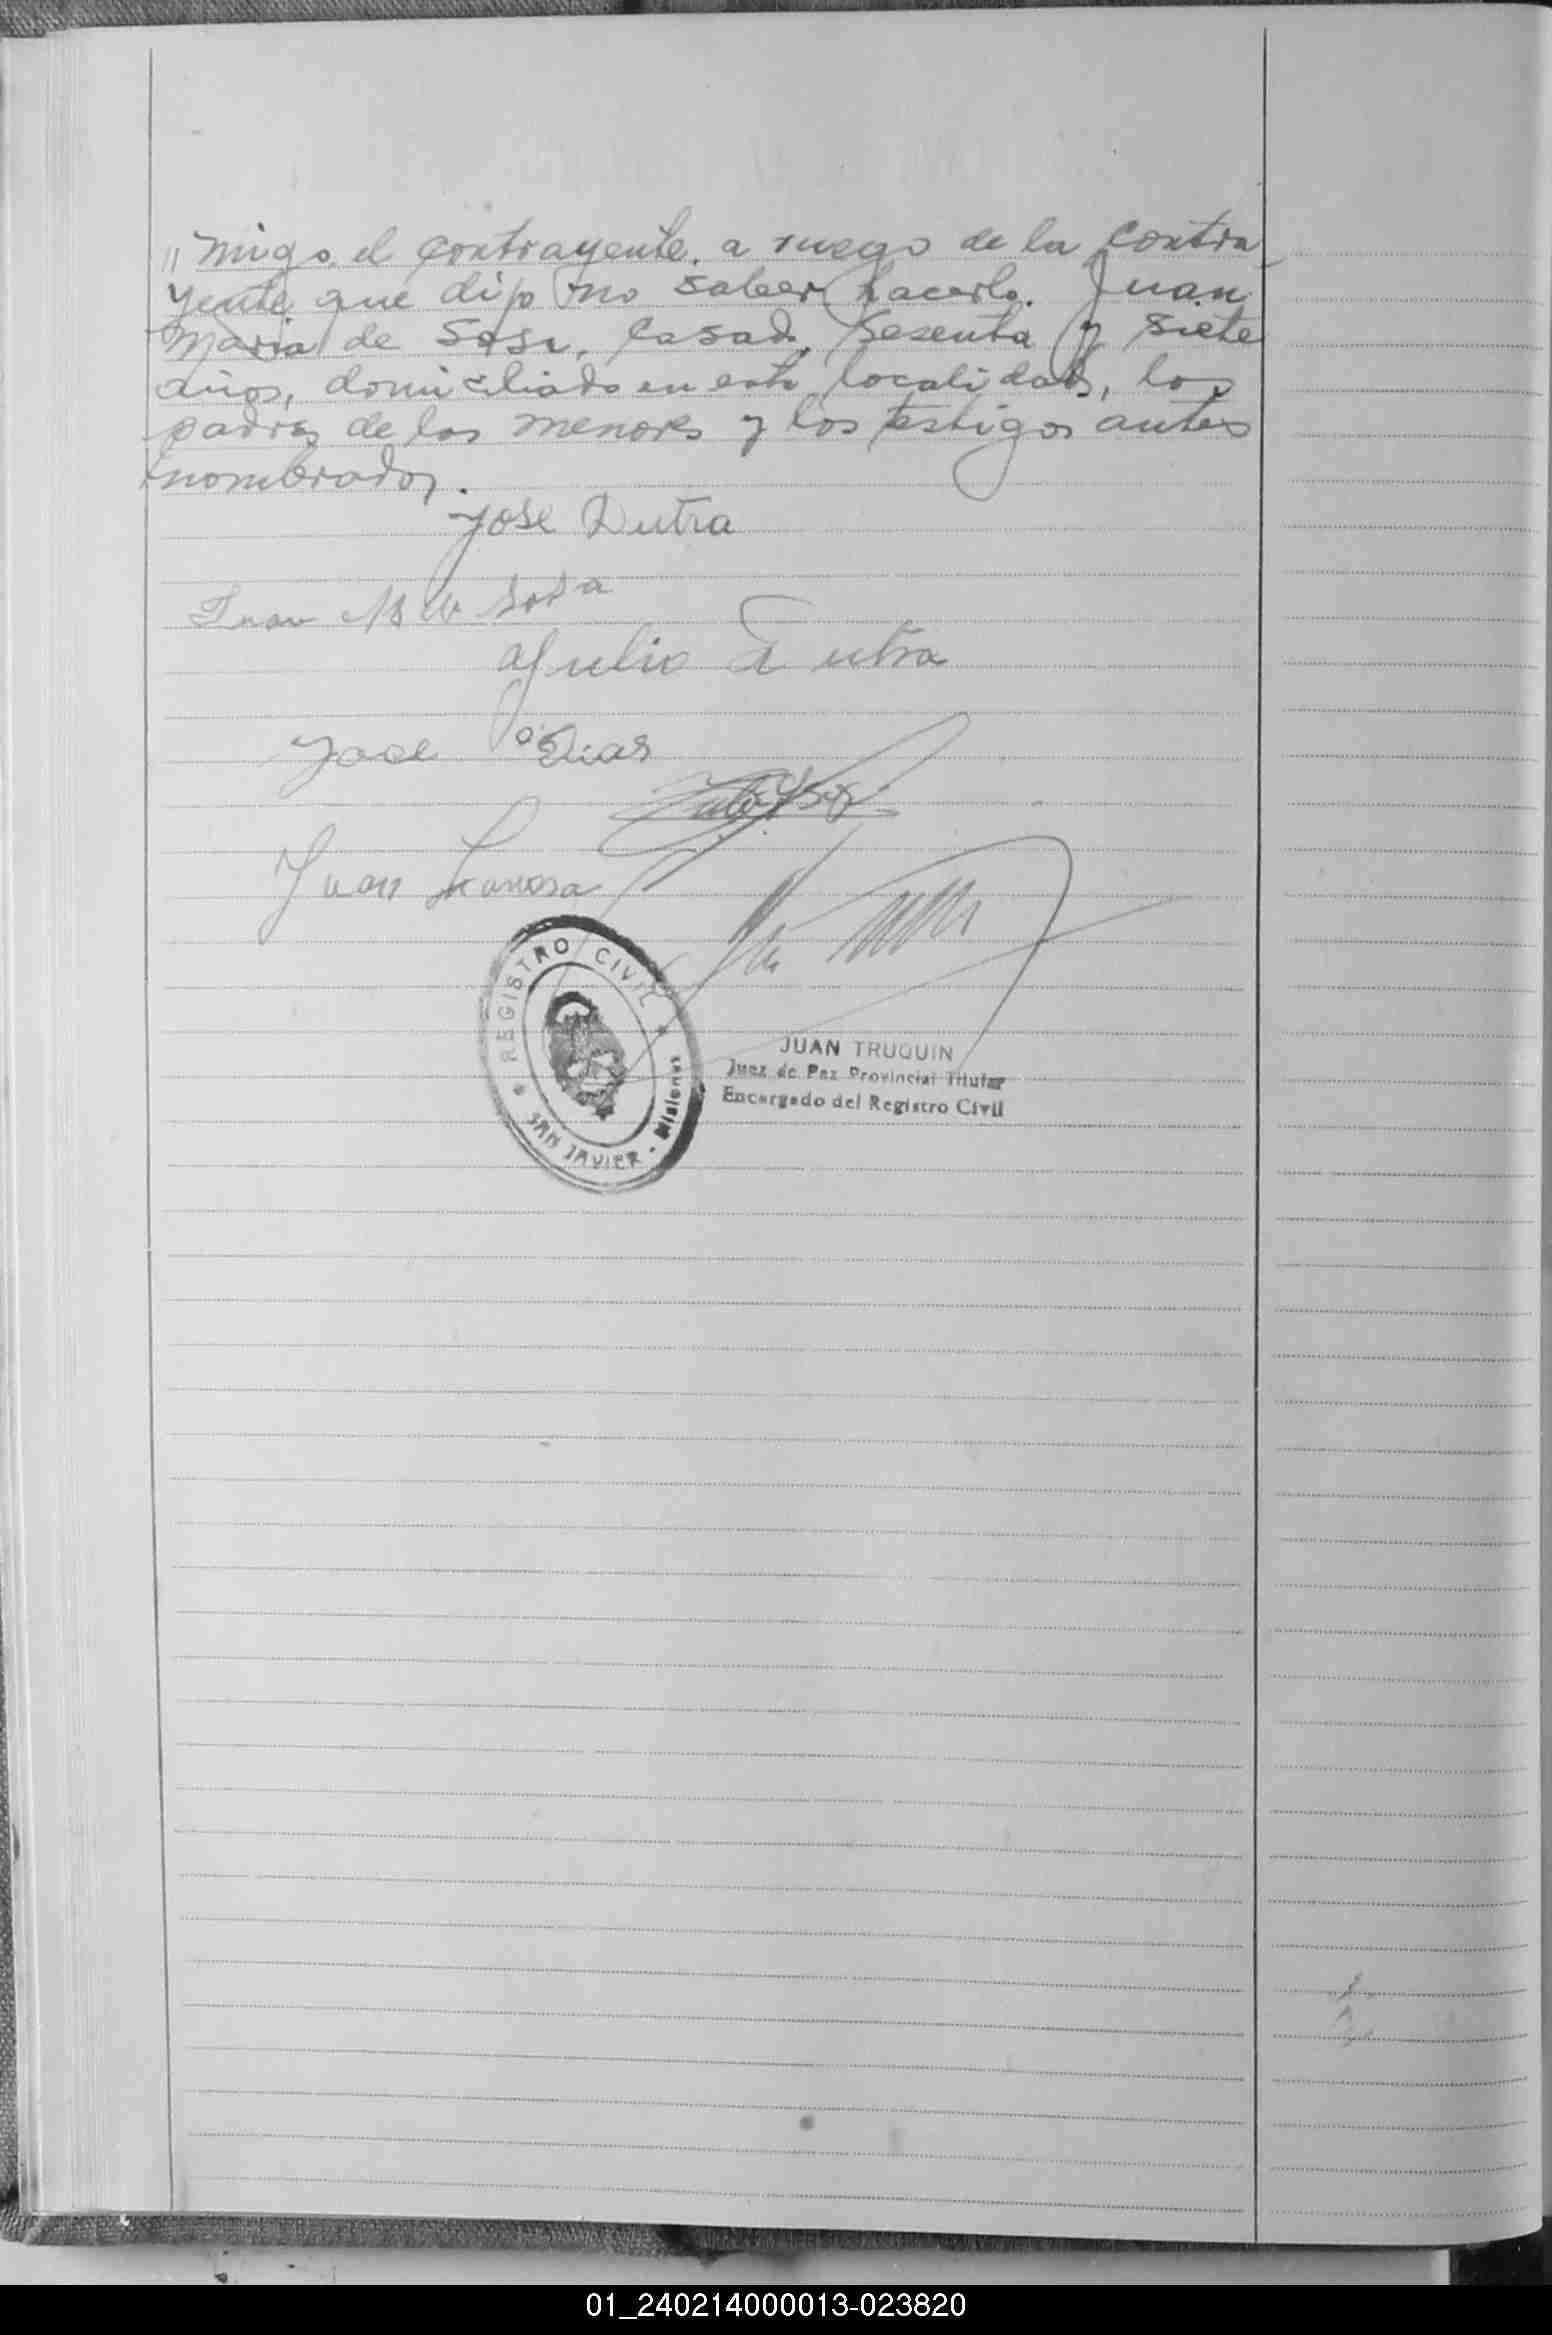 "migo, el contrayente, a ruego de la contra
yente que dijo no saber hacerlo. Juan
Maria de Sosa, casado, sesenta y siete
años, domiciliado en esta localidad, los
padres de los menores y los testigos antes
nombrados.
Jose Dutra
Juan M de Sosa
Julio Dutra
Jose Dias
Juan
REGISTRO CIVIL
SAN JAVIER - Misiones
JUAN TRUQUIN
Juez de Paz Provincial Titular
Encargado del Registro Civil
01_240214000013-023820